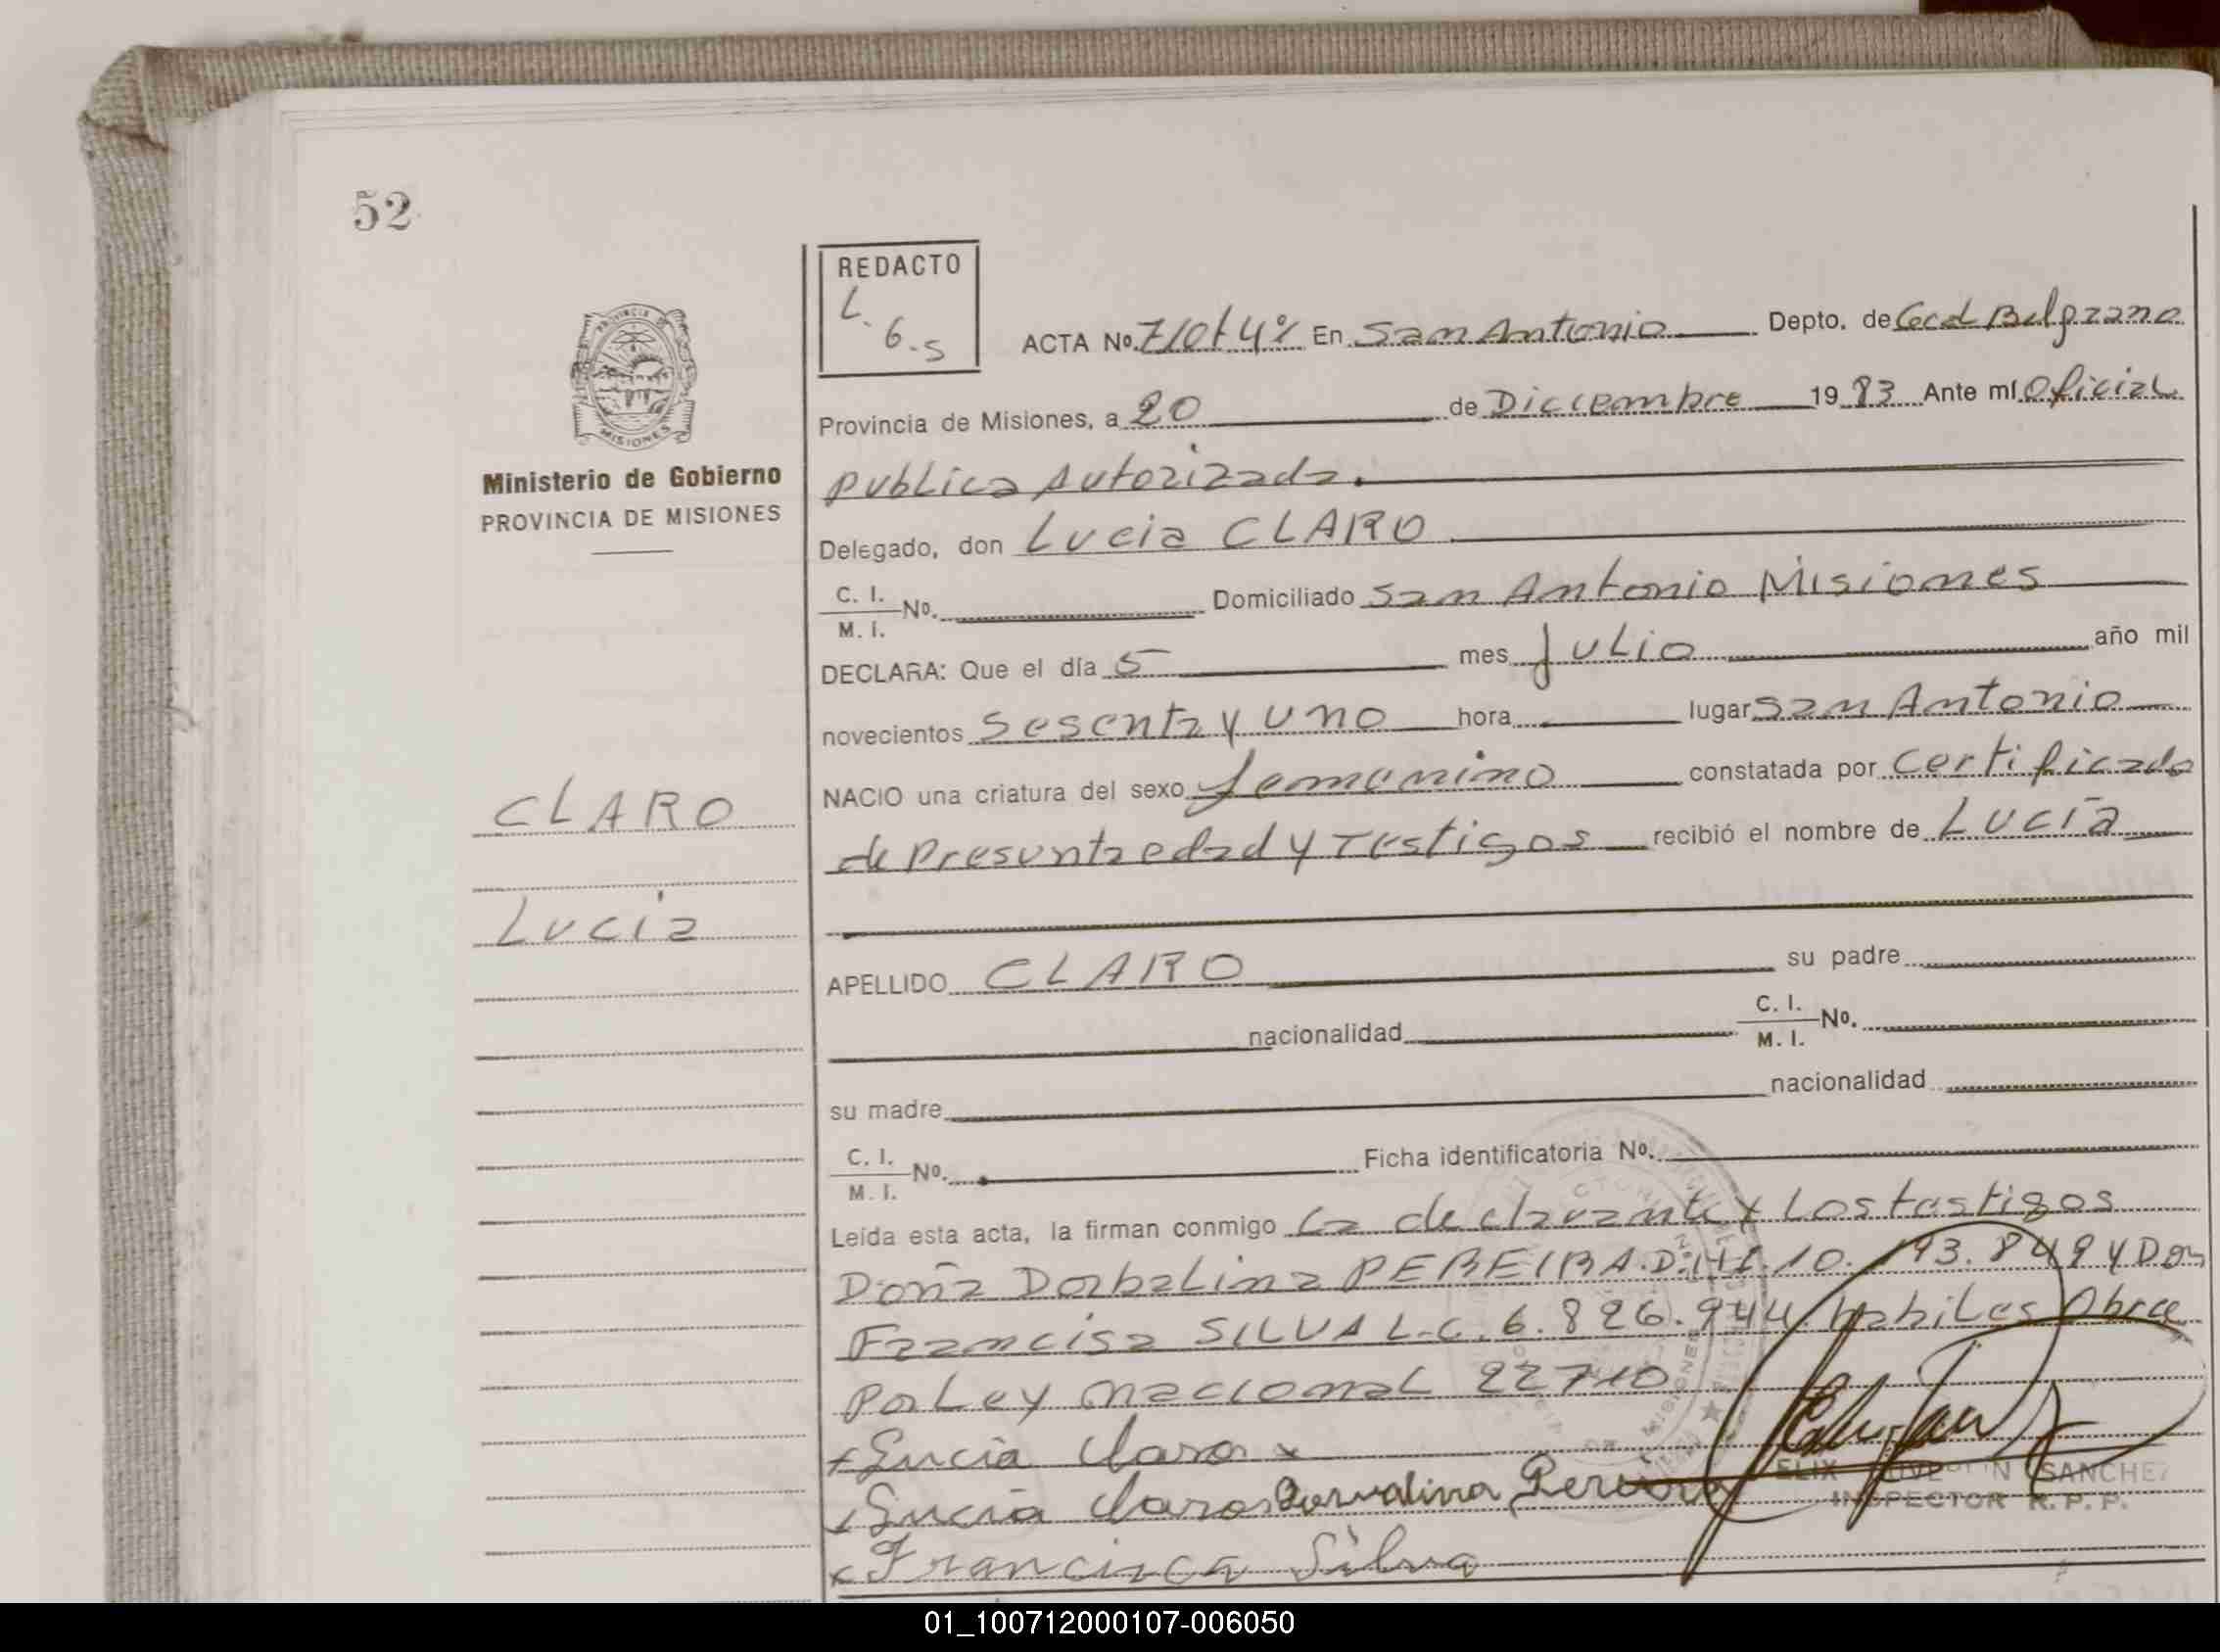 52
REDACTO
L.
6.5
ACTA Nº. 710t4º En San Antonio Depto. de Gral Belgrano
Provincia de Misiones, a 20 de Diciembre 1983 Ante mí Oficial
publica Autorizada.
Delegado, don Lucia CLARO
C. I.
M. I. Nº. Domiciliado San Antonio Misiones
DECLARA: Que el día 5 mes Julio año mil
novecientos Sesenta y uno hora lugar San Antonio
NACIO una criatura del sexo femenino constatada por Certificado
de Presunta edad y Testigos recibió el nombre de Lucia
APELLIDO CLARO su padre
nacionalidad C. I.
M. I. Nº.
su madre nacionalidad
C. I.
M. I. Nº. Ficha identificatoria Nº.
Leída esta acta, la firman conmigo la declarante y Los testigos
Doña Dorbalina PEREIRA. D.N.I. 10.193.849 y Don
Francisa SILVA L.C. 6.826.944 habiles Obra
Por Ley nacional 22710
x Lucia Claro x
x Lucia Claro Dorvalina Pereira
x Francisca Silva
SANCHEZ
INSPECTOR R. P. P.
PROVINCIA DE
MISIONES
Ministerio de Gobierno
PROVINCIA DE MISIONES
CLARO
Lucia
01_100712000107-006050